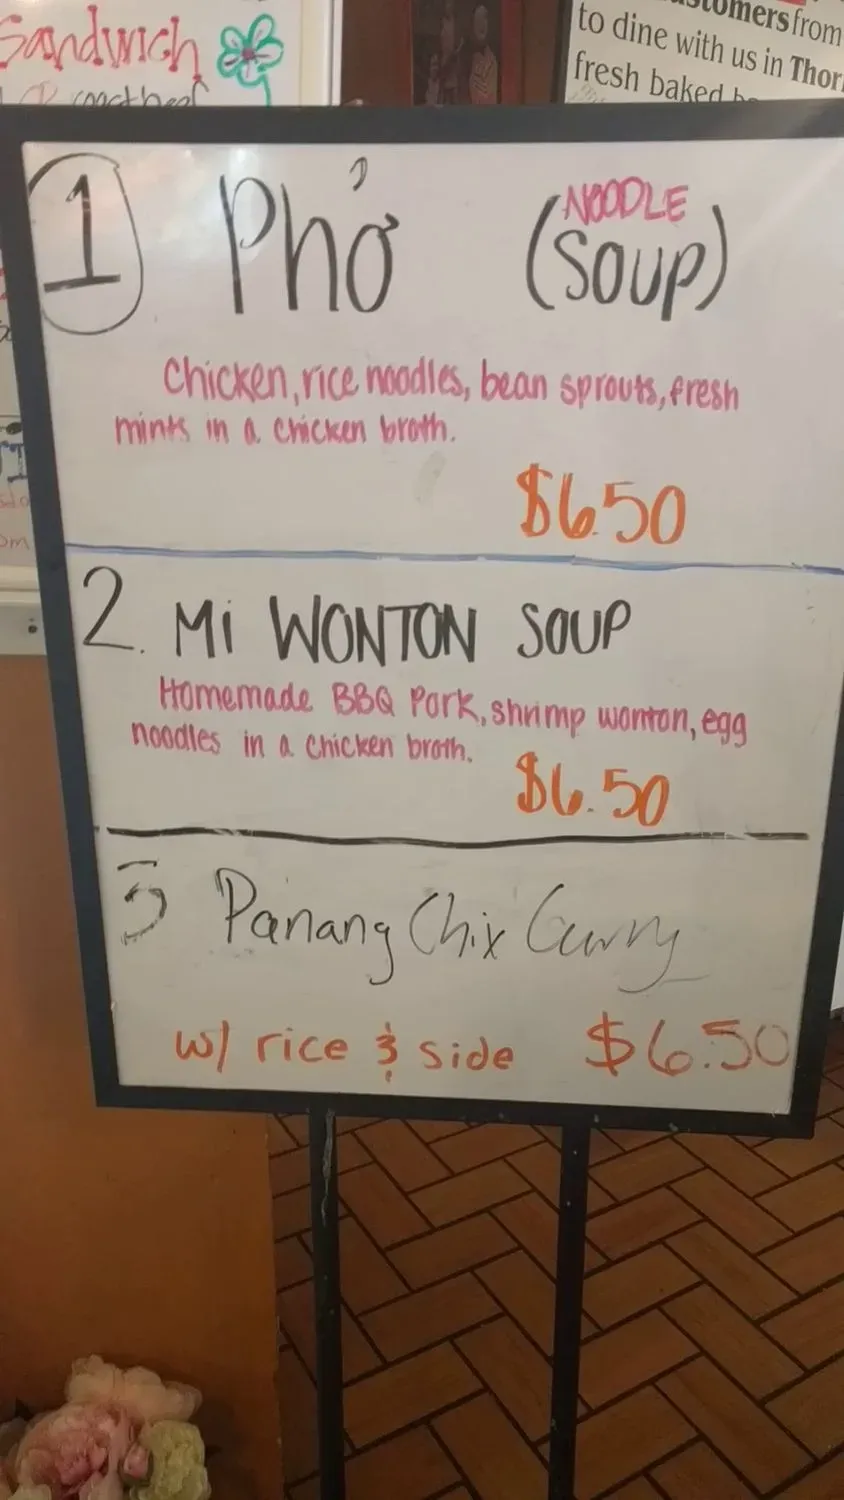 Sandwich
roast beef
customers from
to dine with us in Thor
fresh baked
1 Phở (NOODLE SOUP)
Chicken, rice noodles, bean sprouts, fresh
mints in a chicken broth.
$6.50
2. Mi WONTON SOUP
Homemade BBQ Pork, shrimp wonton, egg
noodles in a chicken broth.
$6.50
3 Panang Chix Curry
w/ rice & side $6.50